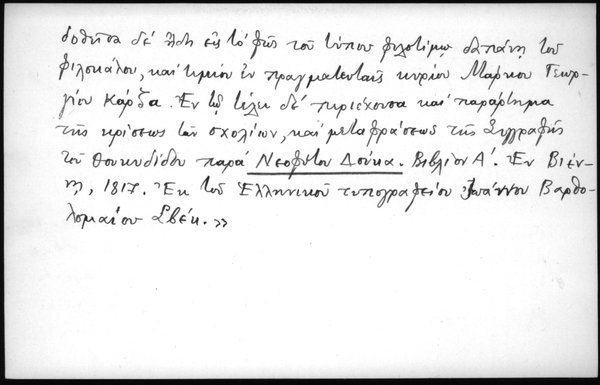 δοθεῖσα δέ ἤδη εἰς τό φῶς τοῦ τύπου φιλοτίμῳ δαπάνῃ τοῦ
φιλοκάλου, καί τιμίου ἐν πραγματευταῖς κυρίου Μάρκου Γεωρ-
γίου Κάρζα. Ἐν τῷ τέλει δέ περιέχουσα καί παράρτημα
τῆς κρίσεως τῶν σχολίων, καί μεταφράσεως τῆς Συγγραφῆς
τοῦ Θουκυδίδου παρά Νεοφύτου Δούκα. Βιβλίον Α΄. Ἐν Βιέν-
νῃ, 1817. Ἐκ τοῦ Ἑλληνικοῦ τυπογραφείου Ἰωάννου Βαρθο-
λομαίου Σβέκ.»